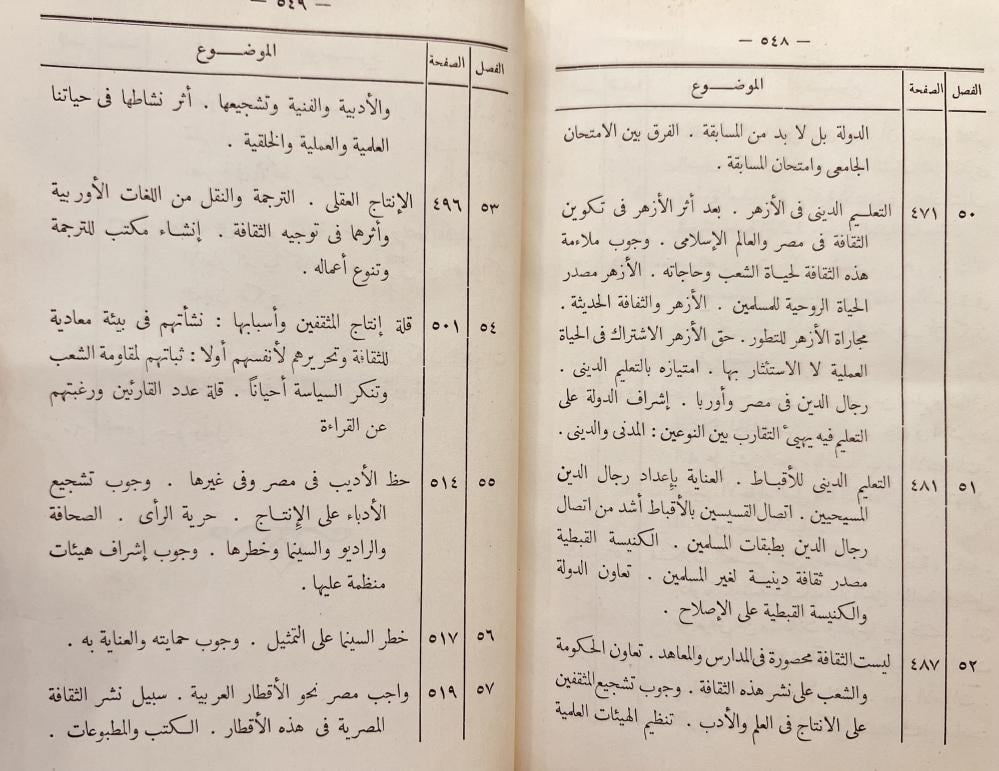 — ٥٤٨ —
الفصل الصفحة الموضـــوع
الدولة بل لا بد من المسابقة . الفرق بين الامتحان
الجامعى وامتحان المسابقة .
٥٠ ٤٧١ التعليم الدينى فى الأزهر . بعد أثر الأزهر فى تكوين
الثقافة فى مصر والعالم الإسلامى . وجوب ملاءمة
هذه الثقافة لحياة الشعب وحاجاته . الأزهر مصدر
الحياة الروحية للمسلمين . الأزهر والثقافة الحديثة .
مجاراة الأزهر للتطور . حق الأزهر الاشتراك فى الحياة
العملية لا الاستئثار بها . امتيازه بالتعليم الدينى .
رجال الدين فى مصر وأوربا . إشراف الدولة على
التعليم فيه يهيئ التقارب بين النوعين : المدنى والدينى .
٥١ ٤٨١ التعليم الدينى للأقباط . العناية بإعداد رجال الدين
المسيحيين . اتصال القسيسين بالأقباط أشد من اتصال
رجال الدين بطبقات المسلمين . الكنيسة القبطية
مصدر ثقافة دينية لغير المسلمين . تعاون الدولة
والكنيسة القبطية على الإصلاح .
٥٢ ٤٨٧ ليست الثقافة محصورة فى المدارس والمعاهد . تعاون الحكومة
والشعب على نشر هذه الثقافة . وجوب تشجيع المثقفين
على الانتاج فى العلم والأدب . تنظيم الهيئات العلمية
— ٥٤٩ —
الفصل الصفحة الموضـــوع
والأدبية والفنية وتشجيعها . أثر نشاطها فى حياتنا
العلمية والعملية والخلقية .
٥٣ ٤٩٦ الإنتاج العقلى . الترجمة والنقل من اللغات الأوربية
وأثرهما فى توجيه الثقافة . إنشاء مكتب للترجمة
وتنوع أعماله .
٥٤ ٥٠١ قلة إنتاج المثقفين وأسبابها : نشأتهم فى بيئة معادية
للثقافة وتحريرهم لأنفسهم أولا : ثباتهم لمقاومة الشعب
وتنكر السياسة أحياناً . قلة عدد القارئين ورغبتهم
عن القراءة
٥٥ ٥١٤ حظ الأديب فى مصر وفى غيرها . وجوب تشجيع
الأدباء على الإنتاج . حرية الرأى . الصحافة
والراديو والسينما وخطرها . وجوب إشراف هيئات
منظمة عليها .
٥٦ ٥١٧ خطر السينما على التمثيل . وجوب حمايته والعناية به .
٥٧ ٥١٩ واجب مصر نحو الأقطار العربية . سبيل نشر الثقافة
المصرية فى هذه الأقطار . الكتب والمطبوعات .